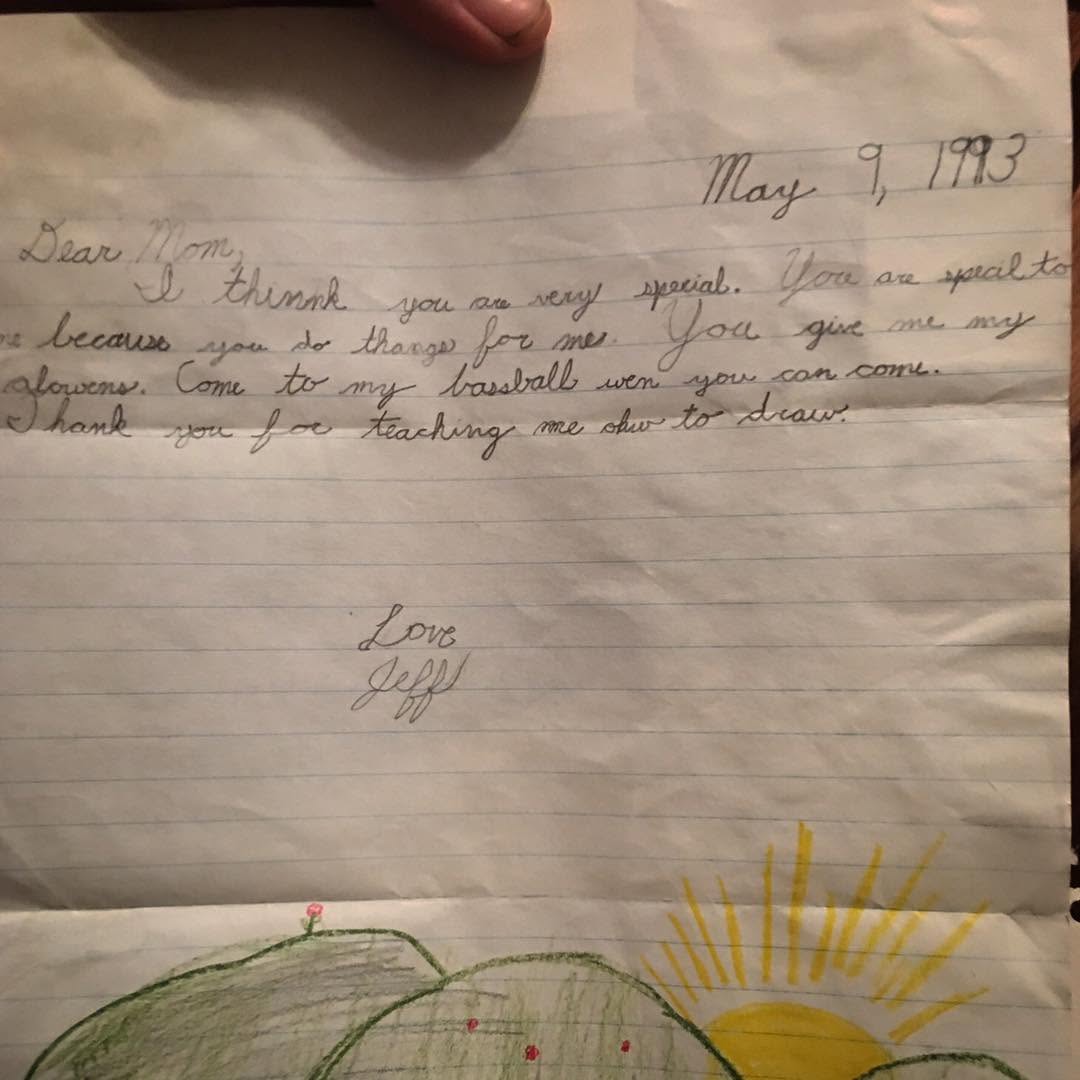 May 9, 1993
Dear Mom,
I thinnk you are very special. You are specil to
me because you do thangs for me. You give me my
glowens. Come to my bassball wen you can come.
Thank you for teaching me ohw to draw.
Love
Jeff